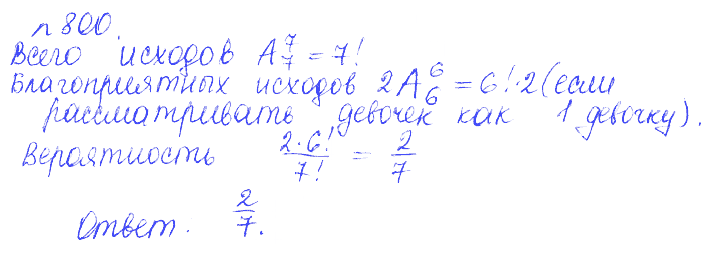 n 800.
Всего исходов A₇⁷ = 7!
Благоприятных исходов 2A₆⁶ = 6!·2 (если
рассматривать девочек как 1 девочку).
Вероятность 2·6!/7! = 2/7
Ответ. 2/7.